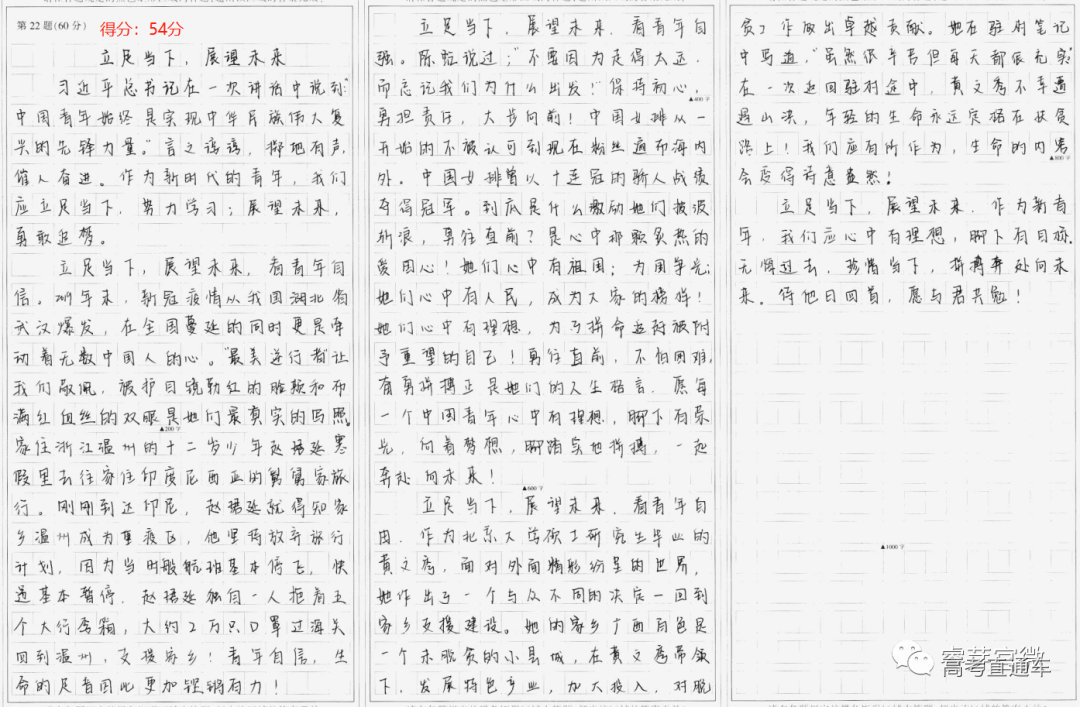 第22题(60分)
得分：54分
立足当下，展望未来
习近平总书记在一次讲话中说到"
中国青年始终是实现中华民族伟大复
兴的先锋力量。"言之谆谆，掷地有声，
催人奋进。作为新时代的青年，我们
应立足当下，努力学习；展望未来，
勇敢追梦。
立足当下，展望未来，看青年自
信。2019年末，新冠疫情从我国湖北省
武汉爆发，在全国蔓延的同时更是牵
动着无数中国人的心。"最美逆行者"让
我们敬佩，被护目镜勒红的脸颊和布
满红血丝的双眼是她们最真实的写照。
▲200字
家住浙江温州的十二岁少年赵珺延寒
假里去往家住印度尼西亚的舅舅家旅
行。刚刚到达印尼，赵珺延就得知家
乡温州成为重疫区，他毅然放弃旅行
计划，因为当时般航班基本停飞，快
递基本暂停，赵珺延独自一人拖着五
个大行李箱，大约2万只口罩过海关
回到温州，支援家乡！青年自信，生
命的足音因此更加铿锵有力！
立足当下，展望未来，看青年自
强。陈虹说过："不要因为走得太远，
而忘记我们为什么出发！"保持初心，
▲400字
勇担责任，大步向前！中国女排从一
开始的不被认可到现在粉丝遍布海内
外。中国女排曾以十连冠的骄人战绩
夺得冠军。到底是什么激励她们披波
斩浪，勇往直前？是心中那颗炙热的
爱国心！她们心中有祖国；为国争光；
她们心中有人民，成为大家的榜样！
她们心中有理想，为了拼命回报被附
予重望的自己！勇往直前，不怕困难，
有勇拼搏正是她们的人生格言。愿每
一个中国青年心中有理想，脚下有荣
光，向着梦想，脚踏实地拼搏，一起
奔赴向未来！
▲600字
立足当下，展望未来，看青年自
由。作为北京大学硕士研究生毕业的
黄文秀，面对外面精彩纷呈的世界，
她作出了一个与众不同的决定—回到
家乡支援建设。她的家乡广西百色是
一个未脱贫的小县城，在黄文秀带领
下，发展特色产业，加大投入，对脱
贫工作做出卓越贡献。她在驻村笔记
中写道，"虽然很辛苦但每天都很充实"
在一次返回驻村途中，黄文秀不幸遭
遇山洪，年轻的生命永远定格在扶贫
路上！我们应有所作为，生命的内容
▲800字
会变得诗意盎然！
立足当下，展望未来，作为新青
年，我们应心中有理想，脚下有目标。
无悔过去，珍惜当下，拼搏奔赴向未
来。待他日回首，愿与君共勉！
▲1000字
高考直通车